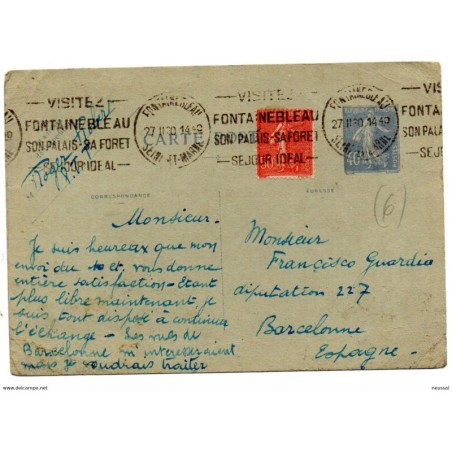 VISITEZ
FONTAINEBLEAU
SON PALAIS-SA FORET
SEJOUR IDEAL
FONTAINEBLEAU
27 II 30 14-40
SEINE-ET-MARNE
VISITEZ
FONTAINEBLEAU
SON PALAIS-SA FORET
SEJOUR IDEAL
FONTAINEBLEAU
27 II 30 14-40
SEINE-ET-MARNE
CARTE POSTALE
50c
40c
Roger
CORRESPONDANCE
ADRESSE
(6)
Monsieur-
Je suis heureux que mon
envoi du 10 ct, vous donne
entière satisfaction - Etant
plus libre maintenant, je
suis, tout disposé à continuer
l'échange - Les vues de
Barcelonne m'interesseraient
mais je voudrais traiter
Monsieur
Francisco Guardia
diputation 227
Barcelonne
Espagne -
www.delcampe.net
neussal